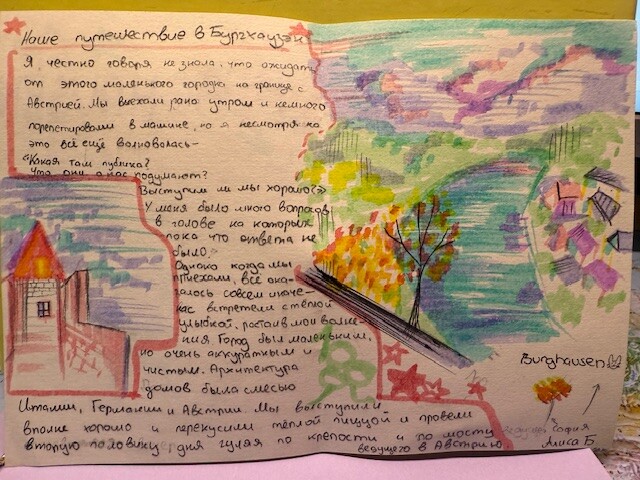 Наше путешествие в Бургхаузэн
Я, честно говоря не знала, что ожидать
от этого маленького городка на границе с
Австрией. Мы выехали рано утром и немного
порепетировали в машине, но я несмотря на
это всё ещё волновалась—
"Какая там публика?
Что они о нас подумают?
Выступим ли мы хорошо?»
У меня было много вопросов
в голове на которых
пока что ответа не
было.
Однако когда мы
приехали, всё ока-
залось совсем иначе-
нас встретели с тёплой
улыбкой, растаив мои волне-
ния. Город был маленьким,
но очень аккуратным и
чистым. Архитектура
домов была смесью
Италии, Германии и Австрии. Мы выступили
вполне хорошо и перекусили тёплой пиццой и провели
вторую половину дня гуляя по крепости и по мосту
ведущего в Австрию
Burghausen
София
Алиса Б.